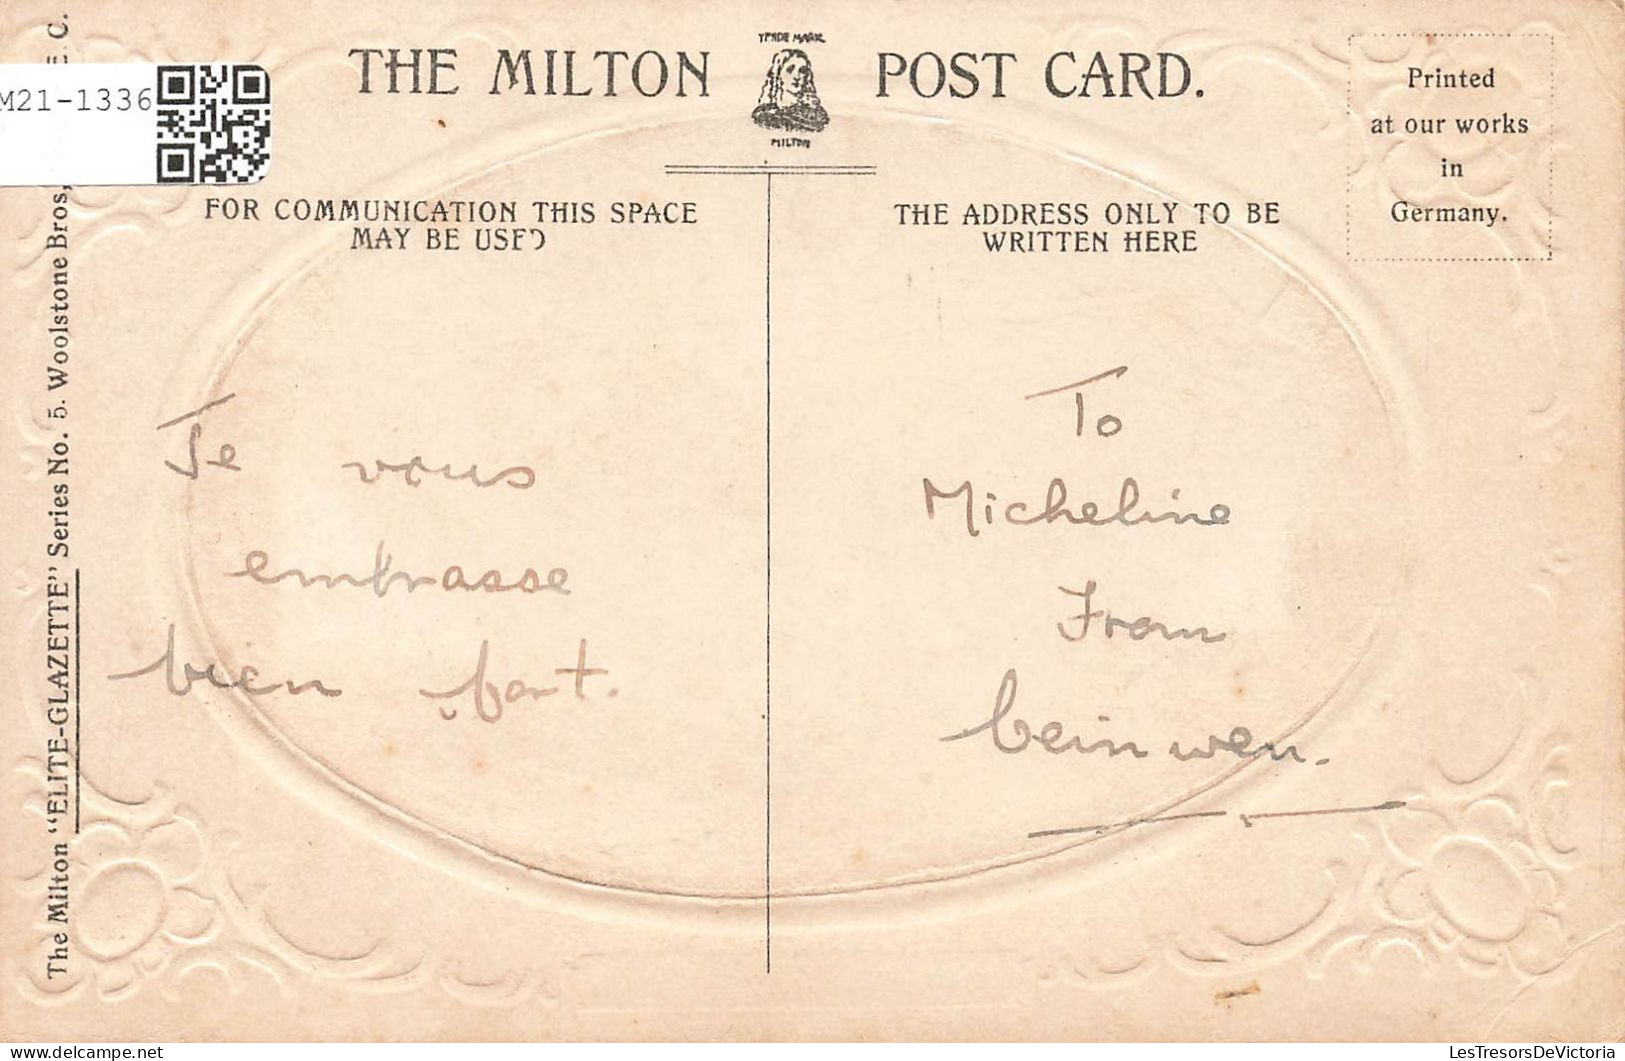 THE MILTON POST CARD.
TRADE MARK
MILTON
Printed
at our works
in
Germany.
M21-1336
FOR COMMUNICATION THIS SPACE
MAY BE USED
THE ADDRESS ONLY TO BE
WRITTEN HERE
The Milton "ELITE-GLAZETTE" Series No. 5. Woolstone Bros, E.C.
Je vous
embrasse
bien fort.
To
Micheline
From
beinwen.
LesTresorsDeVictoria